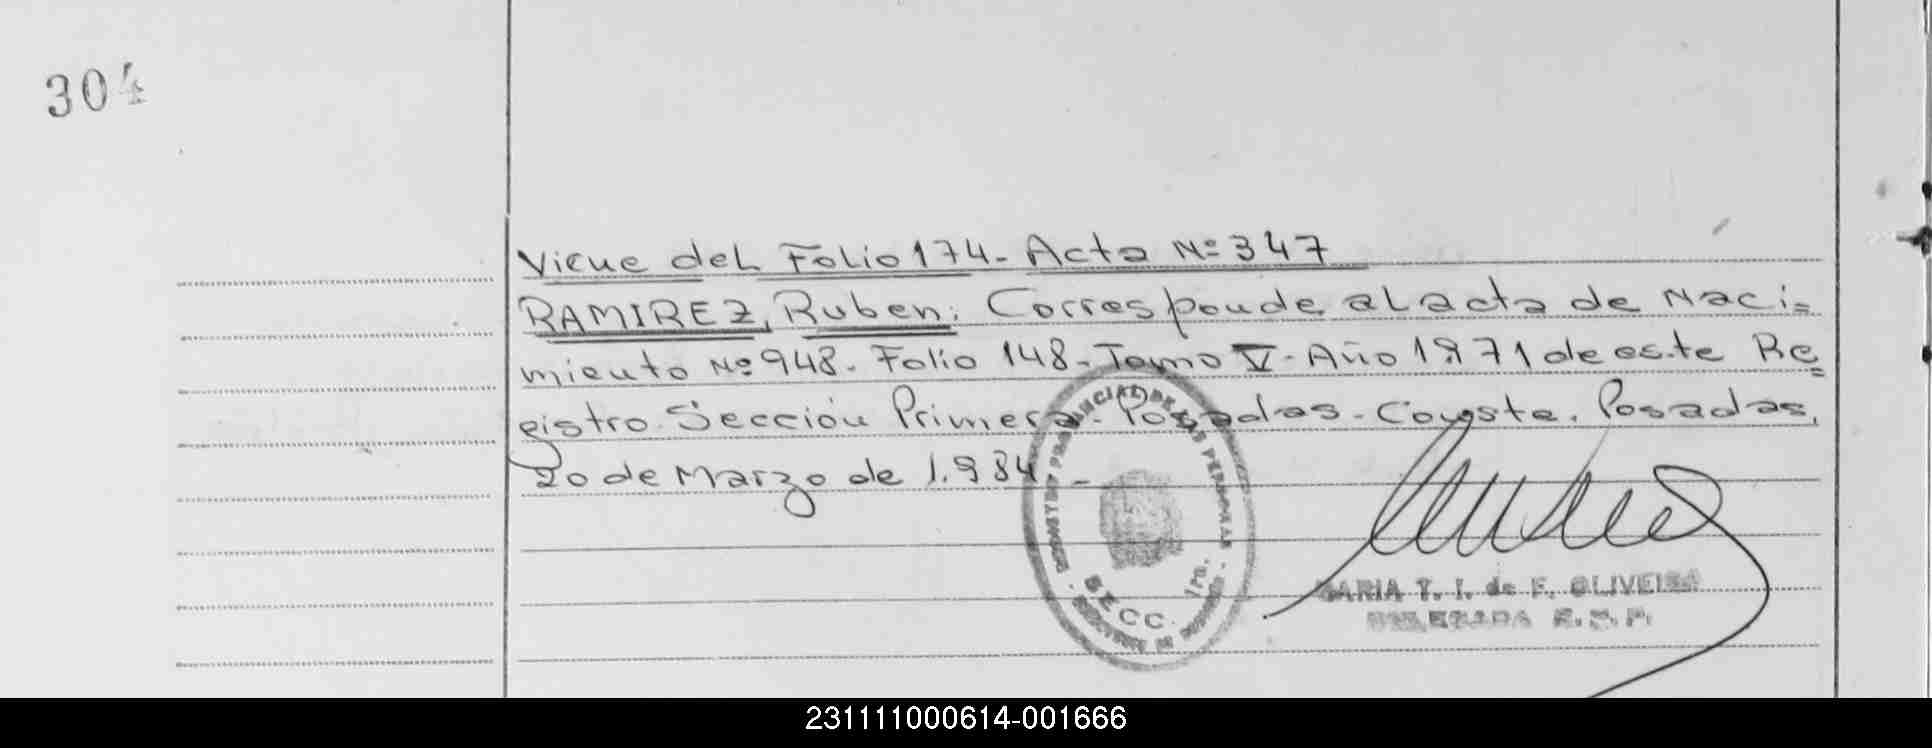 304
Viene del Folio 174- Acta Nº 347
RAMIREZ, Ruben: Corresponde al acta de Naci=
miento Nº 948- Folio 148- Tomo V- Año 1971 de este Re=
gistro Sección Primera- Posadas- Conste. Posadas,
20 de Marzo de 1.984-
PROVINCIAL DE LAS PERSONAS
SECC. 1ra.
MARIA T. I. de F. OLIVEIRA
DELEGADA R.N.P.
231111000614-001666